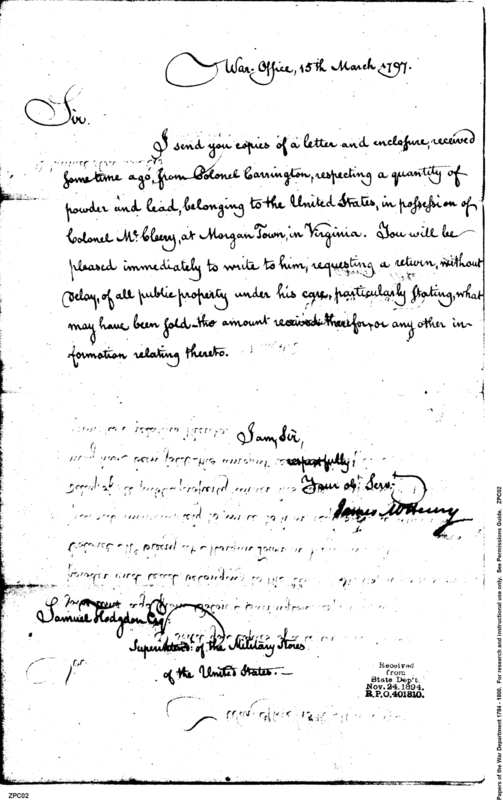 War-Office, 15th March 1797.
Sir.
I send you copies of a letter and enclosure, received
sometime ago, from Colonel Carrington, respecting a quantity of
powder and lead, belonging to the United States, in possession of
Colonel Mc. Cleery, at Morgan Town, in Virginia. You will be
pleased immediately to write to him, requesting a return, without
delay, of all public property under his care, particularly stating, what
may have been sold - the amount received therefor, or any other in-
formation relating thereto.
I am, Sir,
respectfully,
Your ob. Serv.
James McHenry
Samuel Hodgdon Esq.
Superintend: of the Military Stores
of the United States.-
Received
from
State Dep't.
Nov. 24. 1894.
R.P.O. 401810.
ZPC02
Papers of the War Department 1784 - 1800. For research and instructional use only. See Permissions Guide. ZPC02